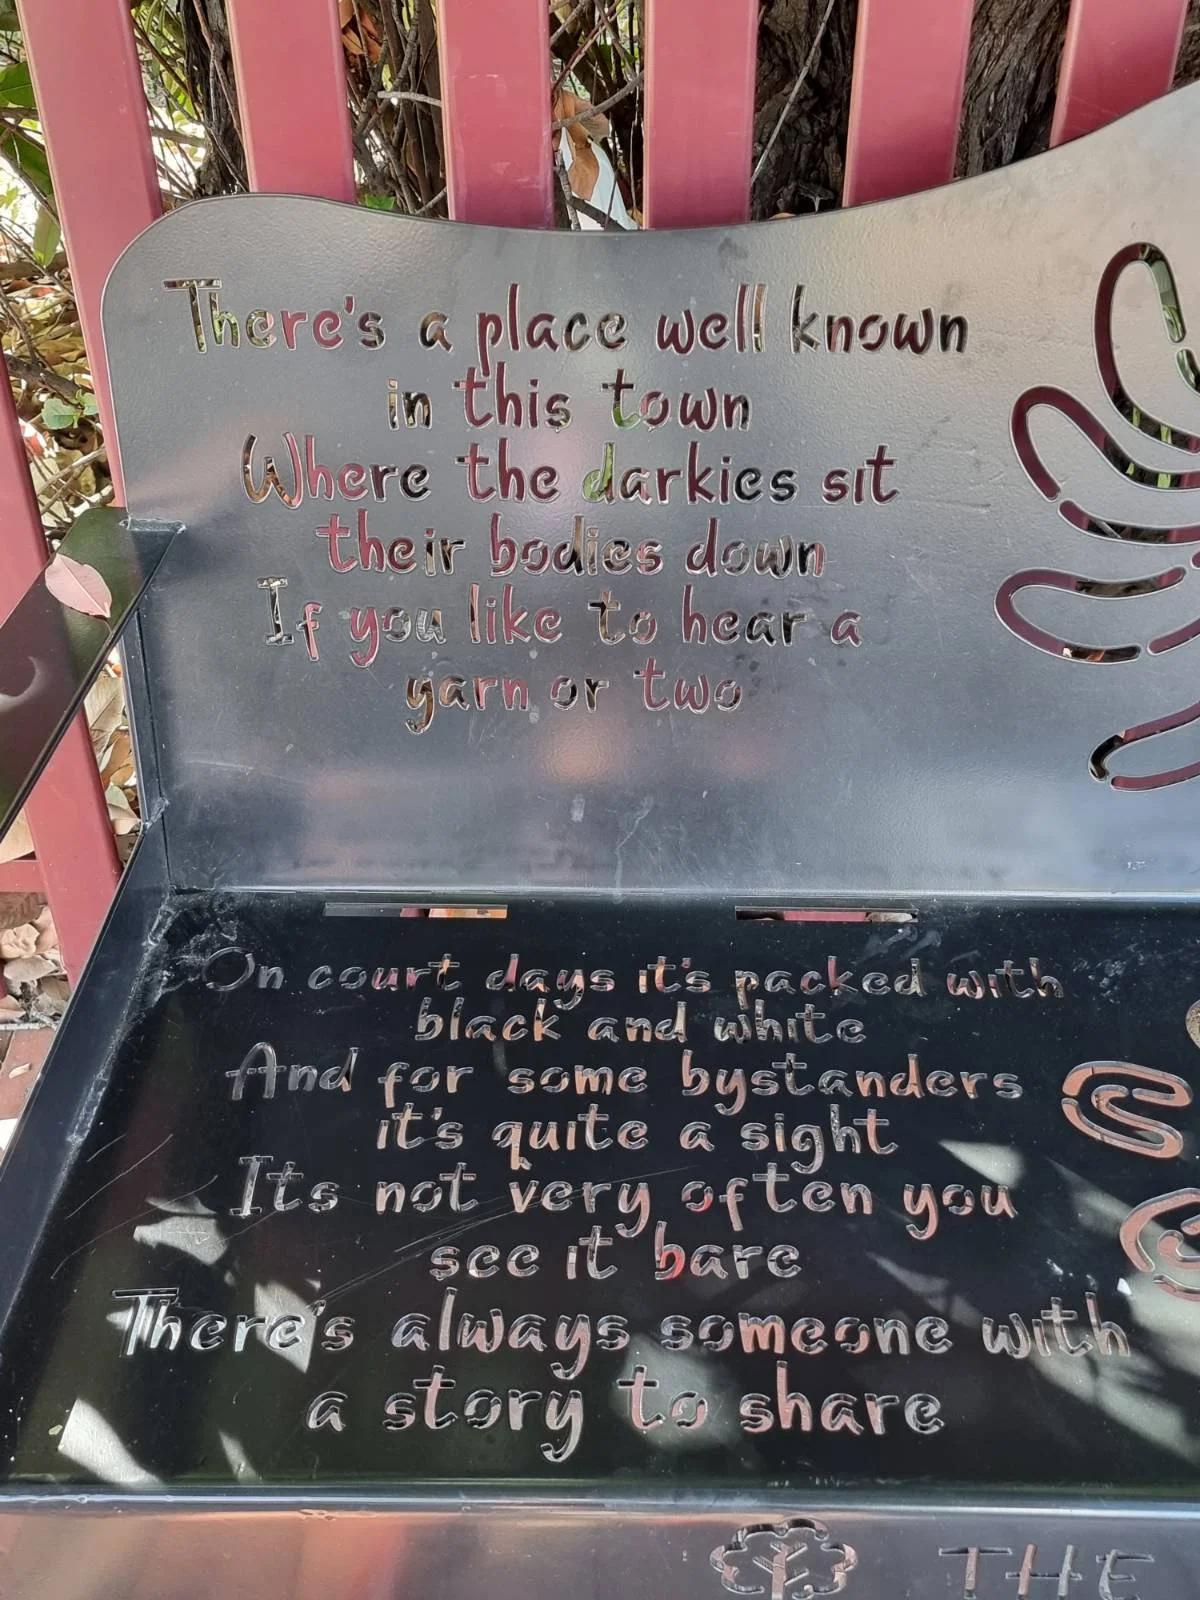 There's a place well known
in this town
Where the darkies sit
their bodies down
If you like to hear a
yarn or two
On court days it's packed with
black and white
And for some bystanders
it's quite a sight
Its not very often you
see it bare
There's always someone with
a story to share
THE